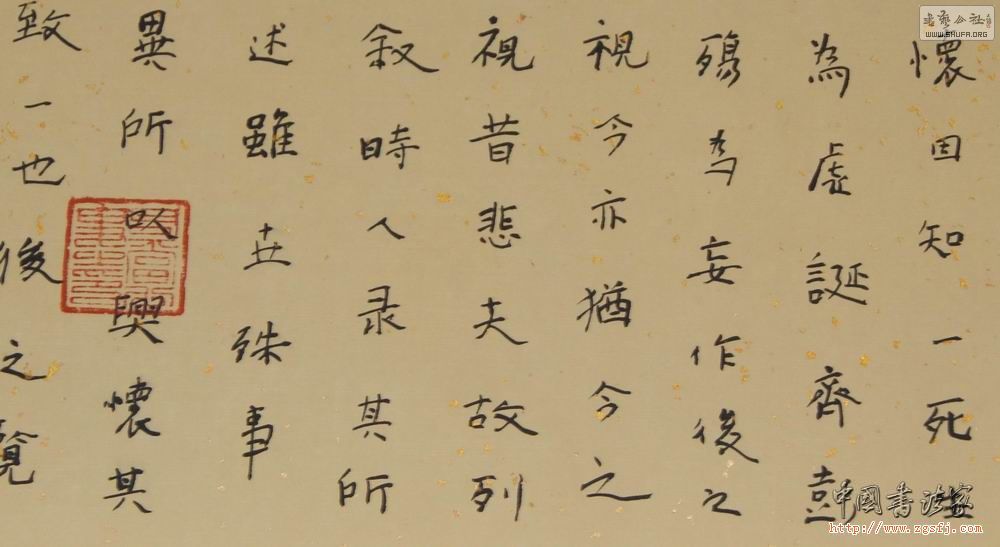 懷固知一死生
為虛誕齊彭
殤為妄作後之
視今亦猶今之
視昔悲夫故列
叙時人录其所
述雖世殊事
異所以興懷其
致一也後之覽
书艺公社
WWW.SHUFA.ORG
中国书法家
http://www.zgsfj.com